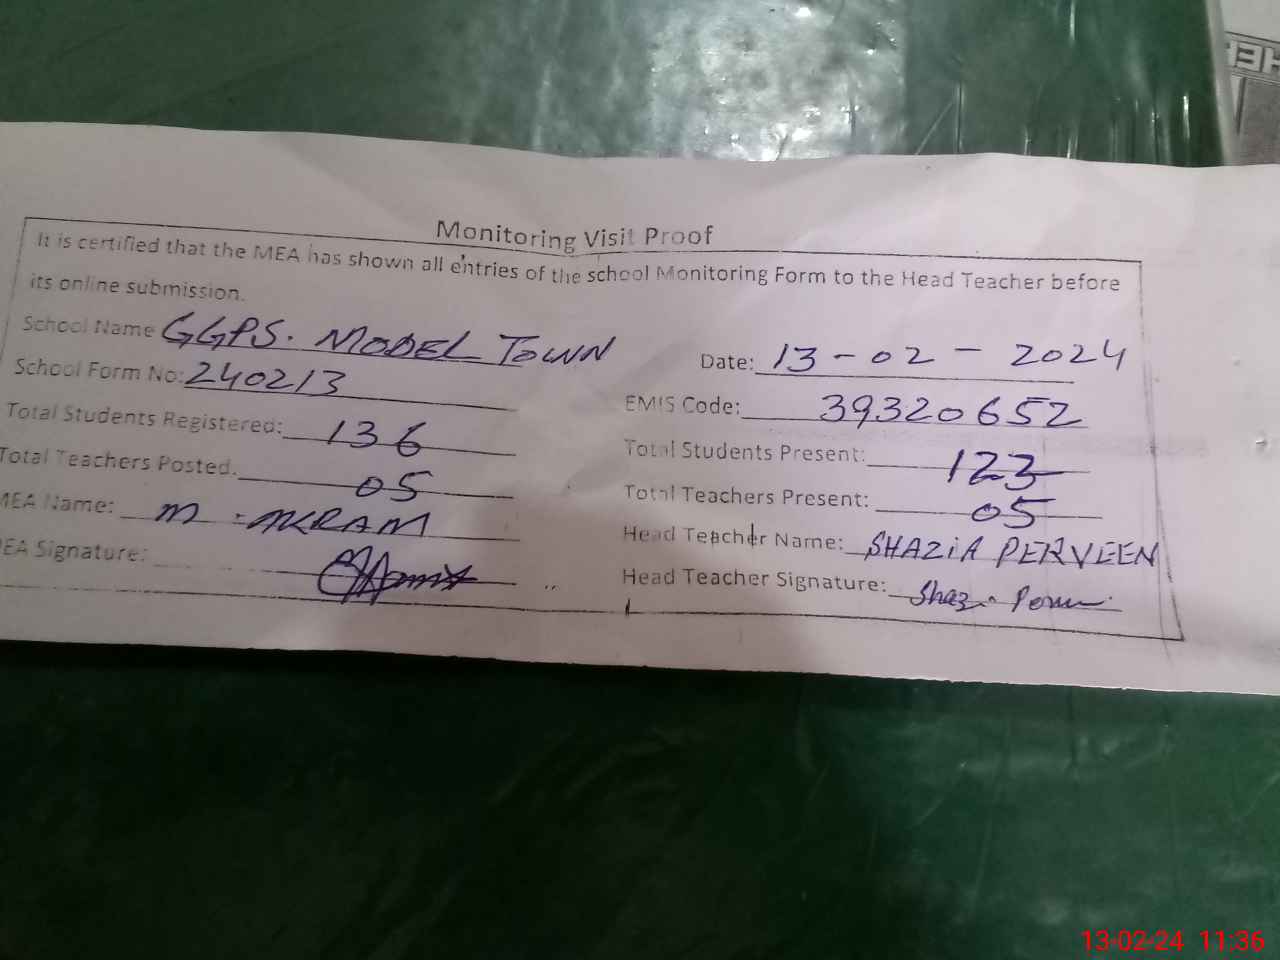 Monitoring Visit Proof
It is certified that the MEA has shown all entries of the school Monitoring Form to the Head Teacher before
its online submission.
School Name GGPS. MODEL TOWN
Date: 13-02-2024
School Form No: 240213
EMIS Code: 39320652
Total Students Registered: 136
Total Students Present: 123
Total Teachers Posted. 05
Total Teachers Present: 05
MEA Name: M. AKRAM
Head Teacher Name: SHAZIA PERVEEN
MEA Signature:
Head Teacher Signature:
13-02-24 11:36